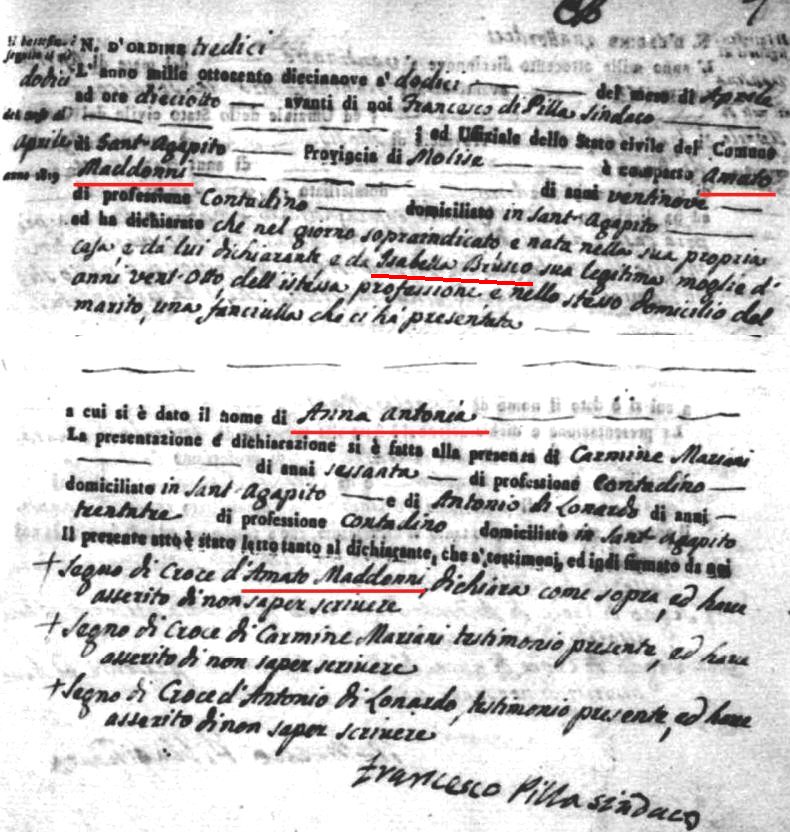 N. D'ORDINE tredici
Il battesimo è
seguito il dì
dodici
del mese di
Aprile
anno 1819
L'anno mille ottocento diecinnove a' dodici del mese di Aprile
ad ore dieciotto avanti di noi Francesco di Pilla Sindaco
ed Uffiziale dello Stato civile del Comune
di Sant'Agapito Provincia di Molise è comparso Amato
Maddonni di anni ventinove
di professione Contadino domiciliato in Sant'Agapito
ed ha dichiarato che nel giorno sopraindicato e nata nella sua propria
casa, e da lui dichiarante e da Isabella Brusco sua legitima moglie d'
anni vent'otto, dell'istessa professione e nello stesso domicilio del
marito, una fanciulla che ci ha presentata
a cui si è dato il nome di Anna Antonia
La presentazione e dichiarazione si è fatta alla presenza di Carmine Mariani
di anni sessanta di professione Contadino
domiciliato in Sant'Agapito e di Antonio di Lonardo di anni
trentatre di professione Contadino domiciliato in Sant'Agapito
Il presente atto è stato letto tanto al dichiarante, che a' testimoni, ed indi firmato da noi
+ Segno di Croce d'Amato Maddonni, dichiara come sopra, ed have
asserito di non saper scrivere
+ Segno di Croce di Carmine Mariani testimonio presente, ed have
asserito di non saper scrivere
+ Segno di Croce d'Antonio di Lonardo, testimonio presente, ed have
asserito di non saper scrivere
Francesco Pilla Sindaco